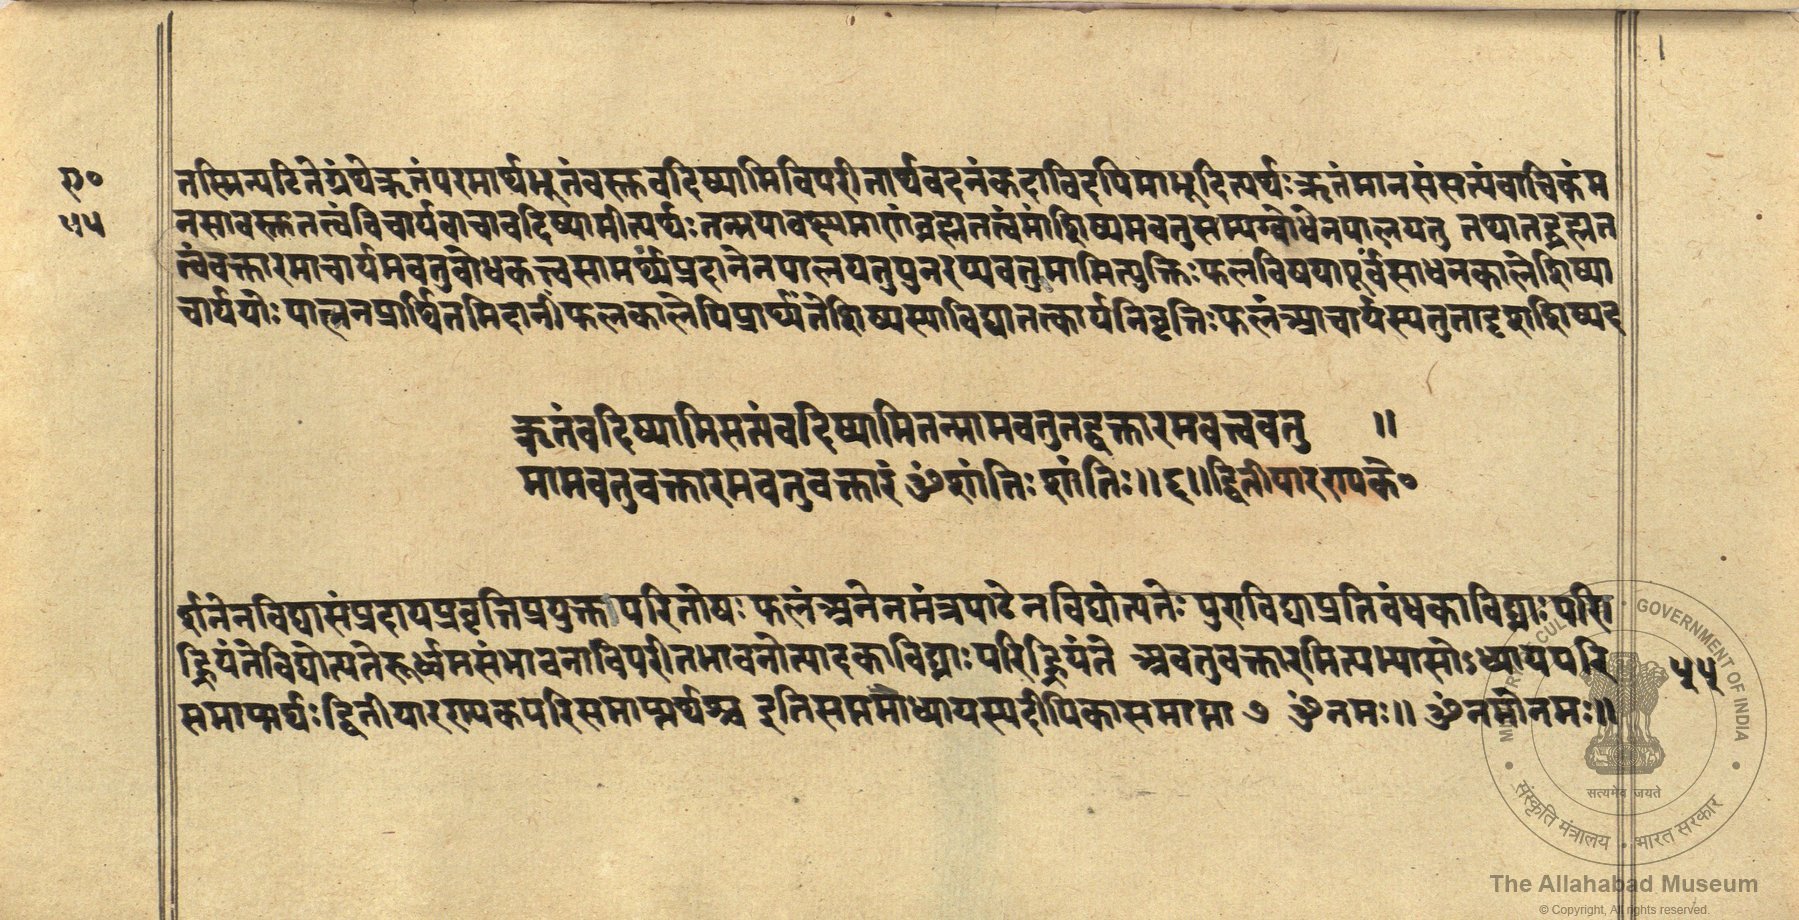 ए०
५५
तस्मिन्पठितेग्रंथेऋतंपरमार्थभूतंवस्तुवदिष्यामिविपरीतार्थवदनंकदाचिदपिमाभूदित्यर्थः ऋतंमानसंसत्यंवाचिकंम
नसावस्तुतत्त्वंविचार्यवाचावदिष्यामीत्यर्थः तन्मयावक्ष्यमाणंब्रह्मतत्त्वंमांशिष्यमवतुसम्यग्बोधेनपालयतु तथातद्ब्रह्मत
त्वंवक्तारमाचार्यमवतुबोधकत्त्वसामर्थ्यप्रदानेनपालयतुपुनरप्यवतुमामित्युक्तिः फलविषयापूर्वंसाधनकालेशिष्या
चार्ययोः पालनंप्रार्थितमिदानीं फलकालेपिप्रार्थ्यतेशिष्यस्याविद्यातत्कार्यनिवृत्तिः फलंआचार्यस्यतुतादृशशिष्यद
ऋतंवदिष्यामिसत्यंवदिष्यामितन्मामवतुतद्वक्तारमवत्त्ववतु ॥
मामवतुवक्तारमवतुवक्तारं ॐ शांतिः शांतिः॥६॥द्वितीयारण्यके०
र्शनेनविद्यासंप्रदायप्रवृत्तिप्रयुक्तापरितोषः फलंअनेनमंत्रपाठेनविद्योत्पत्तेः पुराविद्याप्रतिबंधकाविघ्नाः परि
ह्रियंतेविद्योत्पत्तेरूर्ध्वमसंभावनाविपरीतभावनोत्पादकाविघ्नाः परिह्रियंते अवतुवक्तारमित्यभ्यासोऽध्यायपरि
समाप्त्यर्थः द्वितीयारण्यकपरिसमाप्त्यर्थश्च इतिसप्तमोध्यायस्यदीपिकासमाप्ता ७ ॐ नमः॥ ॐ नमोनमः॥
५५
MINISTRY OF CULTURE • GOVERNMENT OF INDIA
सत्यमेव जयते
संस्कृति मंत्रालय • भारत सरकार
The Allahabad Museum
© Copyright, All rights reserved.